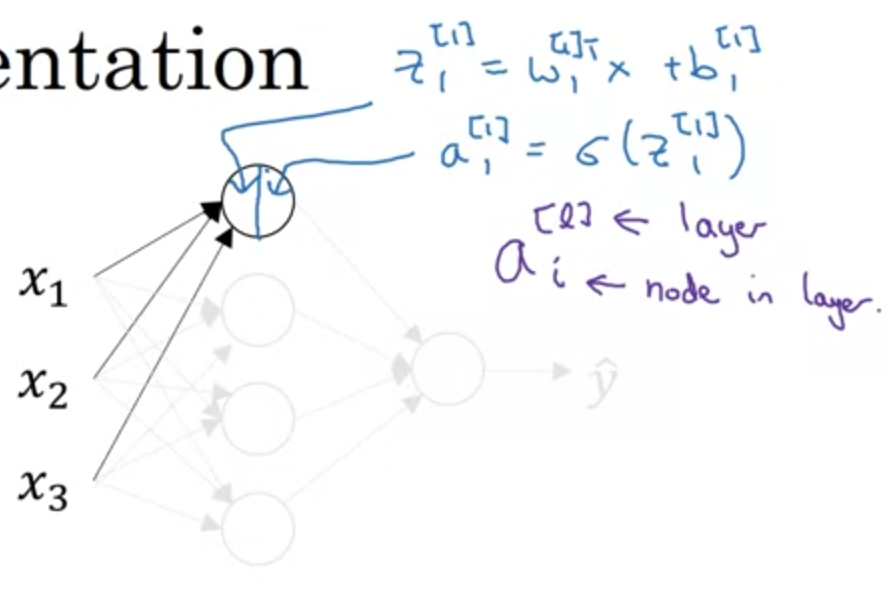 entation
z₁^[1] = w₁^[1]T x + b₁^[1]
a₁^[1] = σ(z₁^[1])
a_i^[l] ← layer
← node in layer.
x₁
x₂
x₃
ŷ